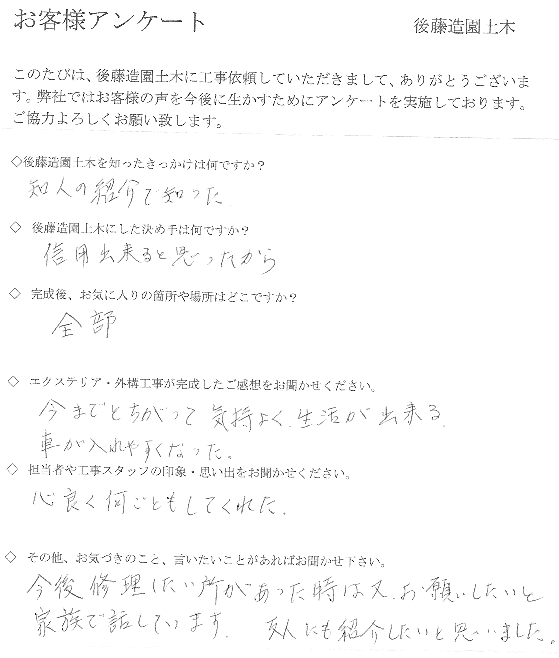 お客様アンケート
後藤造園土木
このたびは、後藤造園土木に工事依頼していただきまして、ありがとうございま
す。弊社ではお客様の声を今後に生かすためにアンケートを実施しております。
ご協力よろしくお願い致します。
◇後藤造園土木を知ったきっかけは何ですか？
知人の紹介で知った
◇ 後藤造園土木にした決め手は何ですか？
信用出来ると思ったから
◇ 完成後、お気に入りの箇所や場所はどこですか？
全部
◇ エクステリア・外構工事が完成したご感想をお聞かせください。
今までとちがって気持よく、生活が出来る。
車が入れやすくなった。
◇ 担当者や工事スタッフの印象・思い出をお聞かせください。
心良く何ごともしてくれた。
◇ その他、お気づきのこと、言いたいことがあればお聞かせ下さい。
今後修理したい所があった時は又、お願いしたいと
家族で話しています。 友人にも紹介したいと思いました。